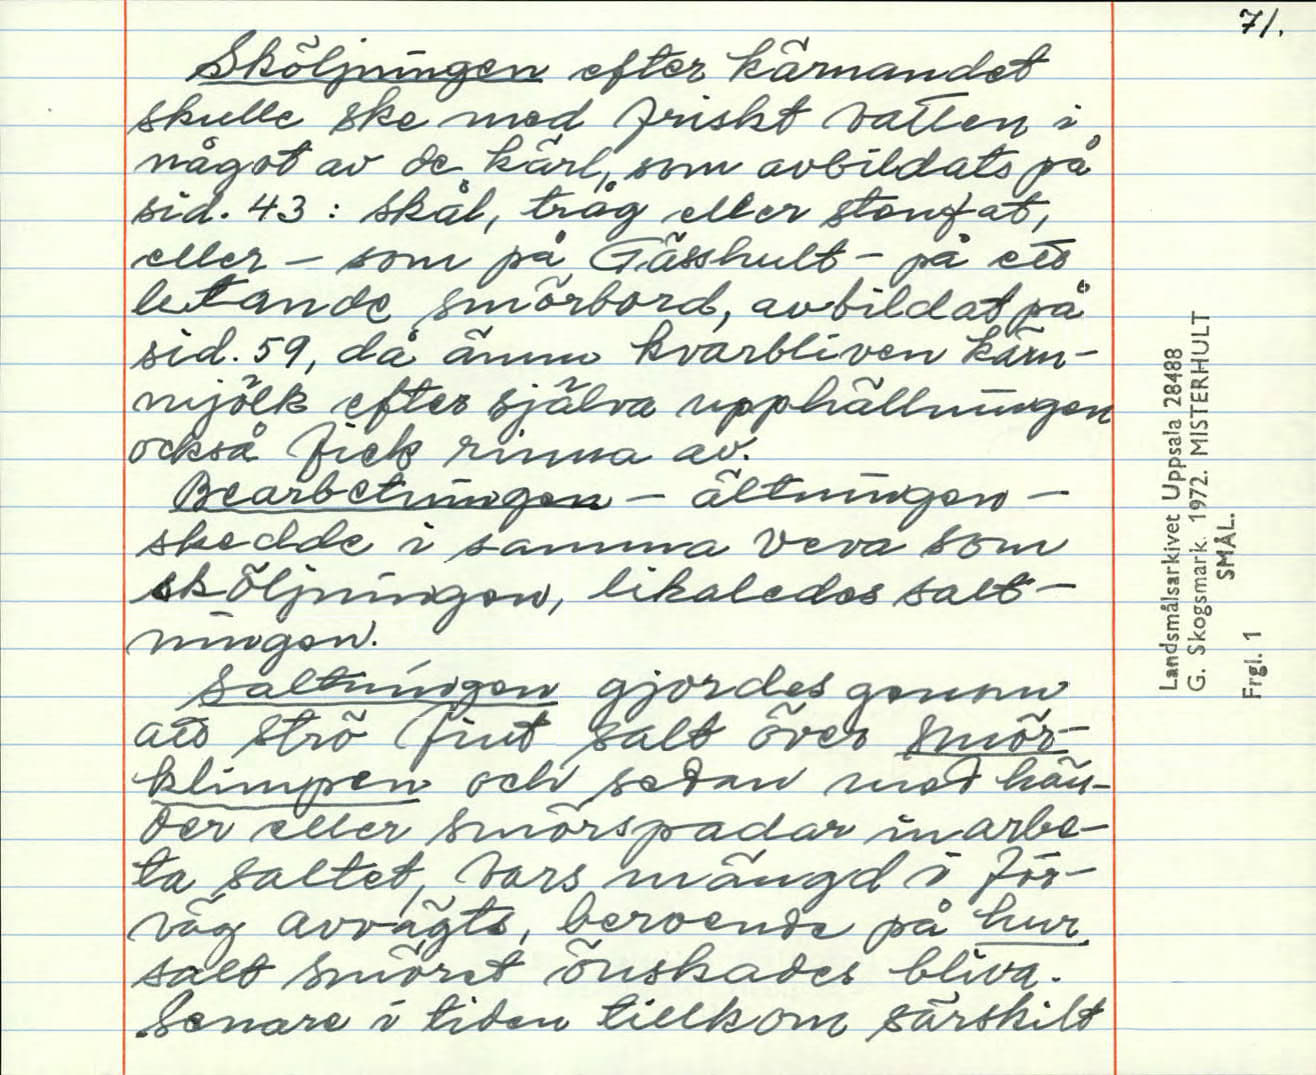 71.
Sköljningen efter kärnandet
skulle ske med friskt vatten i
något av de kärl, som avbildats på
sid. 43 : skål, tråg eller stenfat,
eller – som på Gässhult – på ett
lutande smörbord, avbildat på
sid. 59, då ännu kvarbliven kärn-
mjölk efter själva upphällningen
också fick rinna av.
Bearbetningen – ältningen –
skedde i samma veva som
sköljningen, likaledes salt-
ningen.
Saltningen gjordes genom
att strö fint salt över smör-
klimpen och sedan med hän-
der eller smörspadar inarbe-
ta saltet, vars mängd i för-
väg avvägts, beroende på hur
salt smöret önskades bliva.
Senare i tiden tillkom särskilt
Landsmålsarkivet Uppsala 28488
G. Skogsmark. 1972. MISTERHULT
SMÅL.
Frgl. 1